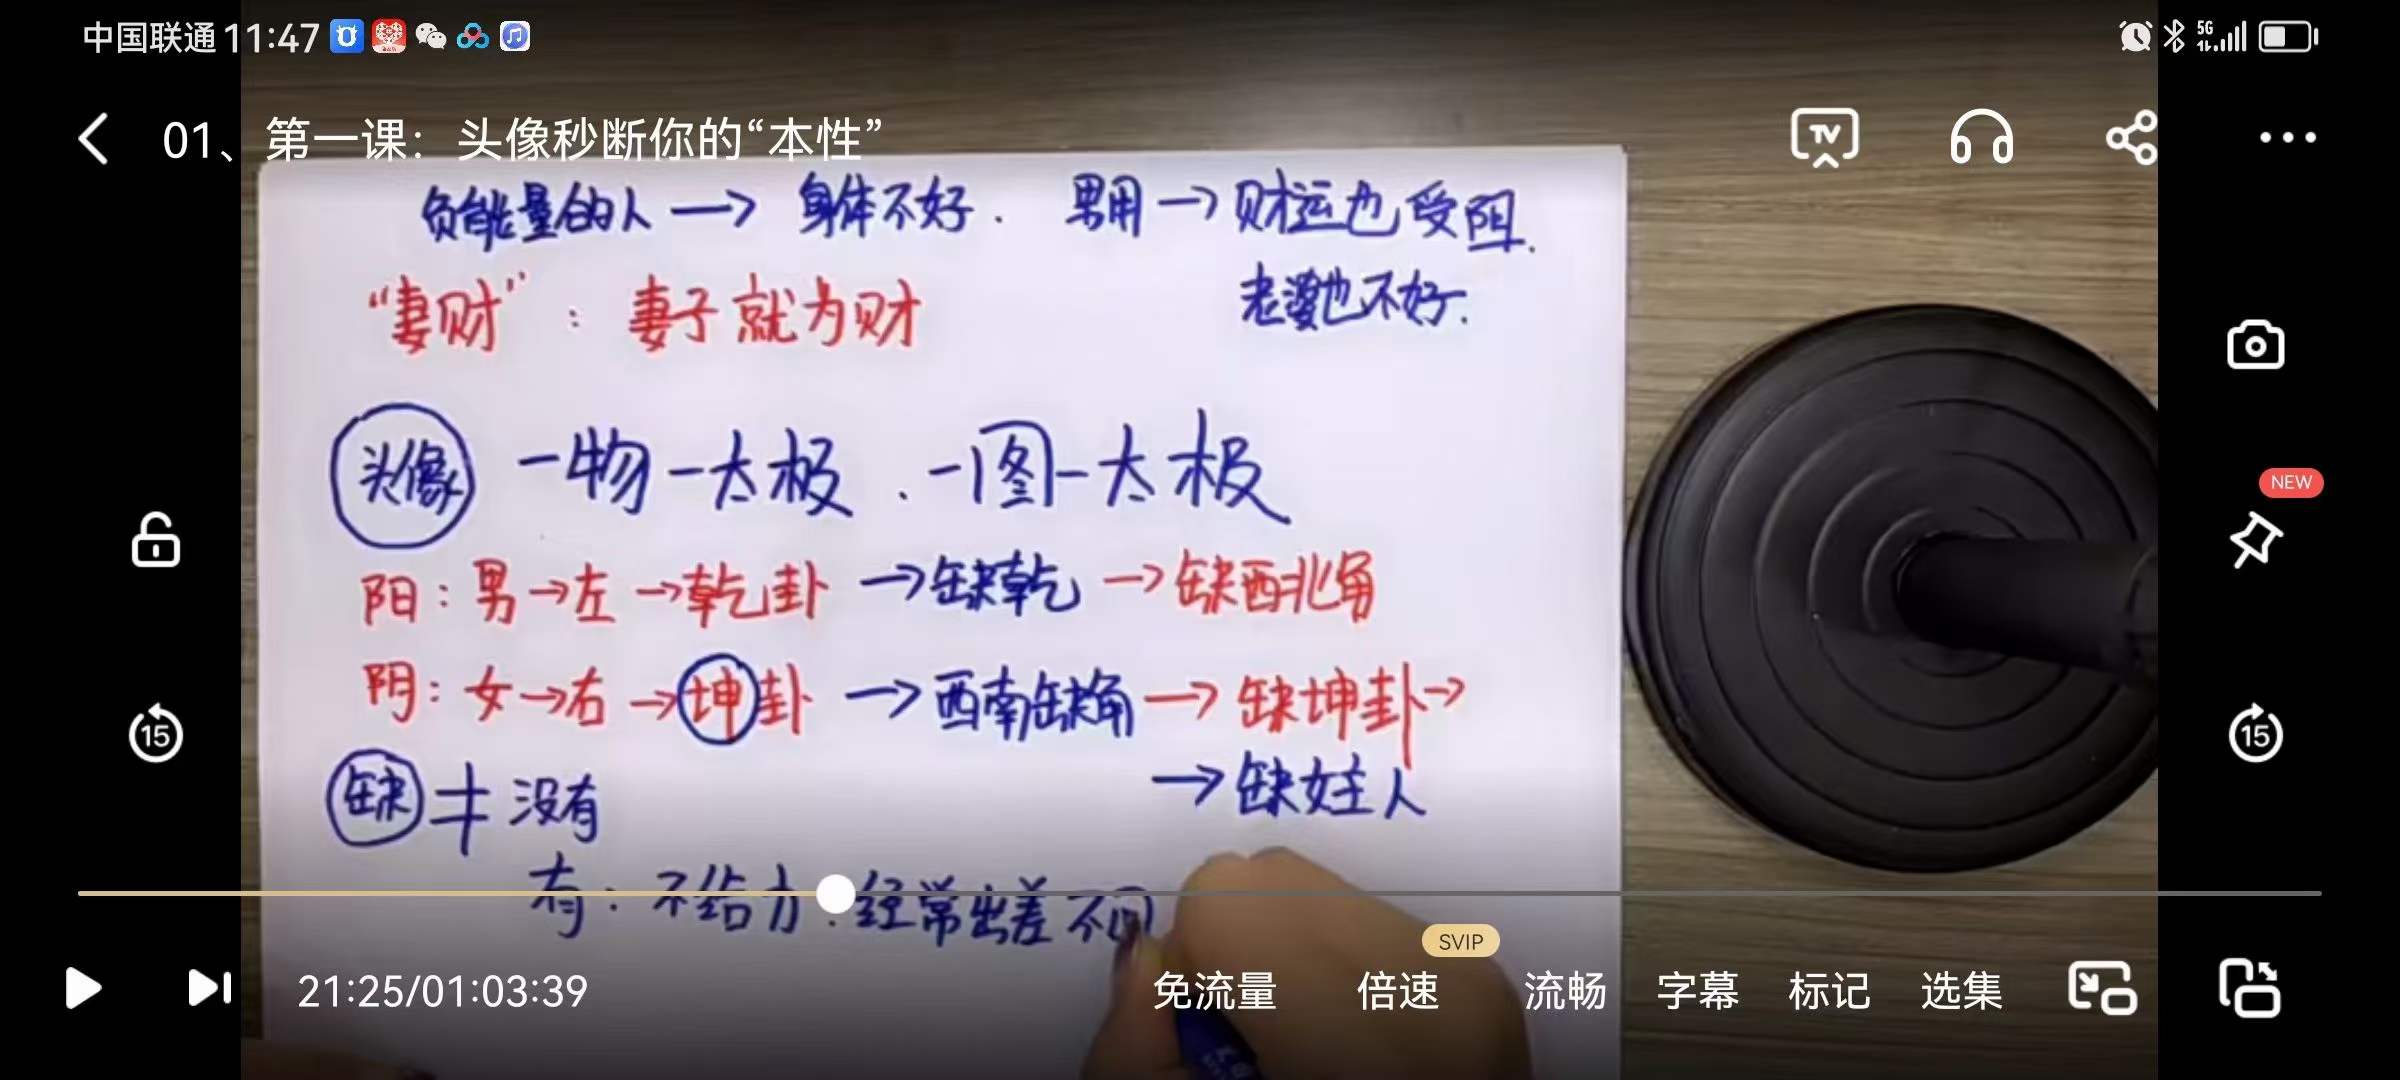 中国联通 11:47
5G
01、第一课：头像秒断你的“本性”
TV
负能量的人→身体不好. 男用→财运也受阻.
老婆也不好.
“妻财”：妻子就为财
头像 一物一太极.一图一太极
阳：男→左→乾卦→缺乾→缺西北角
NEW
阴：女→右→坤卦→西南缺角→缺坤卦→
→缺女主人
缺≠没有
15
15
有：不给力.经常出差不
SVIP
21:25/01:03:39
免流量 倍速 流畅 字幕 标记 选集